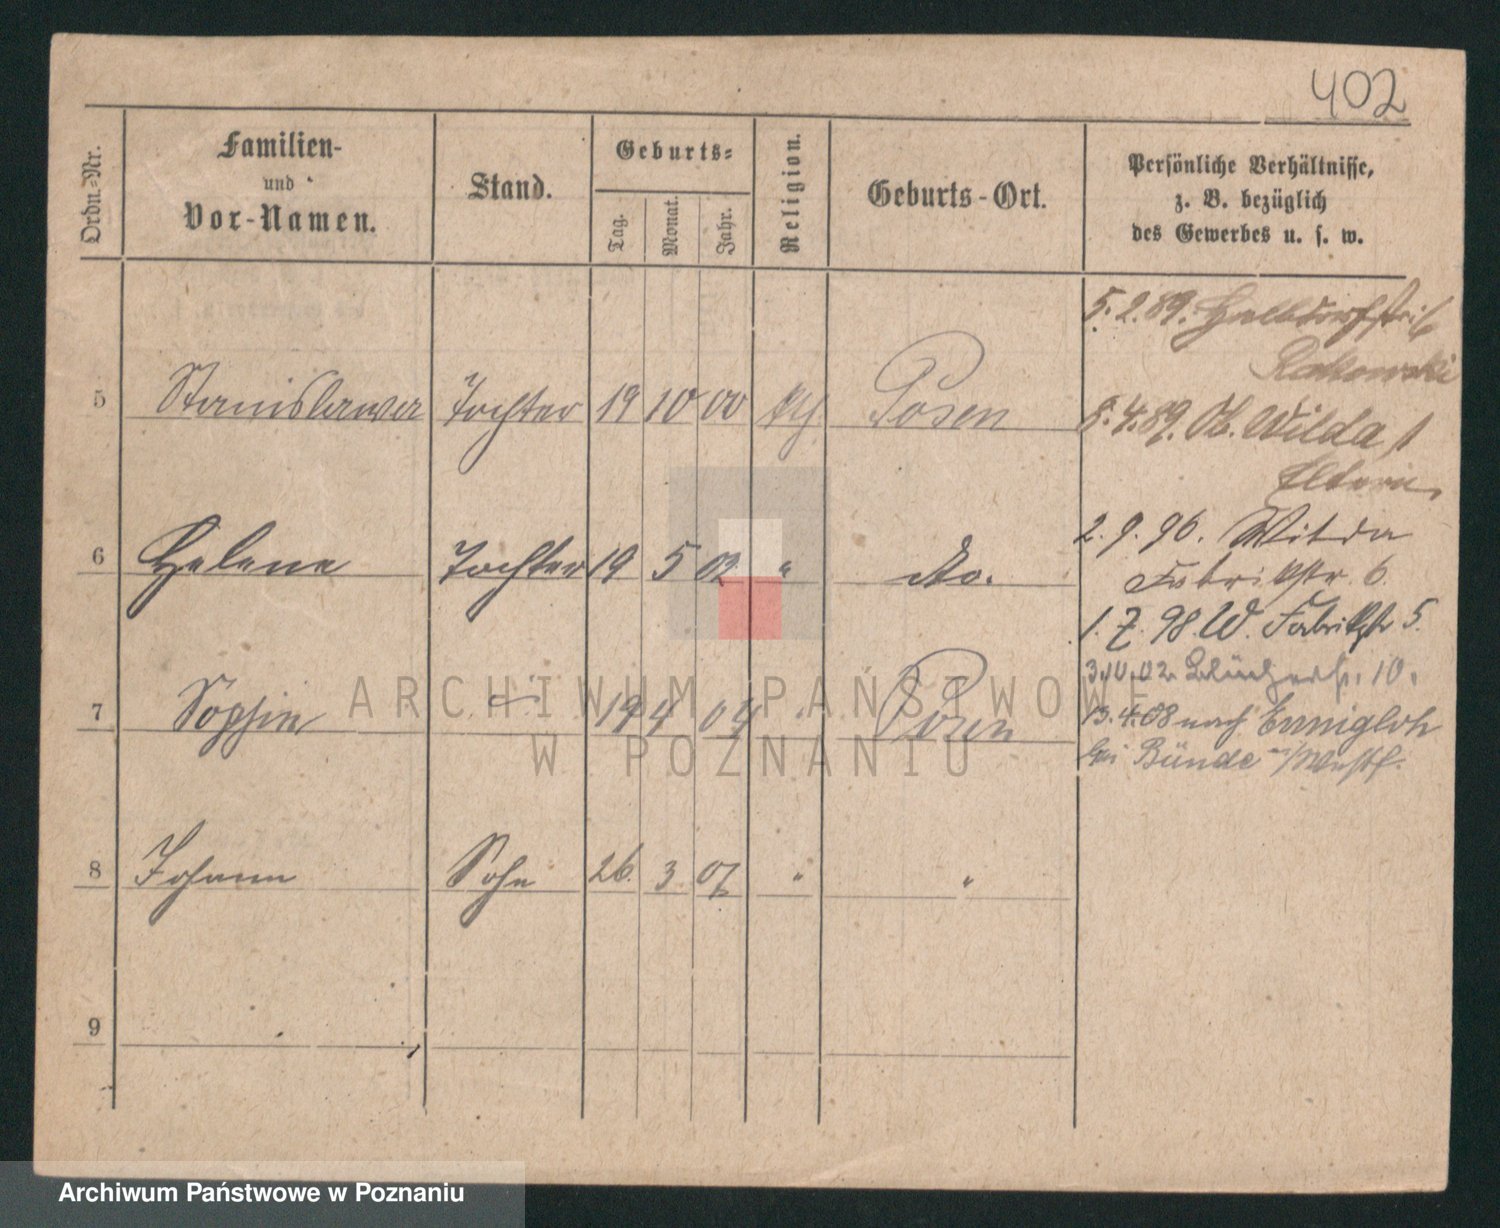 402
Ordn.-Nr.
Familien-
und
Vor-Namen.
Stand.
Geburts-
Tag.
Monat.
Jahr.
Religion.
Geburts-Ort.
Persönliche Verhältnisse,
z. B. bezüglich
des Gewerbes u. s. w.
5.2.89. Halbdorfstr. 6
Rakowski
5 Stanislawa Tochter 19 10 00 kth Posen
5.4.89. Ob. Wilda 1
Eltern
2.9.96. Wilda
6 Helene Tochter 19 5 02 " do.
Fabrikstr. 6.
1.7.98. W. Fabrikstr 5.
3.10.02. Blücherstr. 10.
7 Sophie 19 4 04 " Posen
13.4.08 nach Ennigloh
bei Bünde i/Westf.
8 Johann Sohn 26. 3 07 " "
9
ARCHIWUM PAŃSTWOWE
W POZNANIU
Archiwum Państwowe w Poznaniu